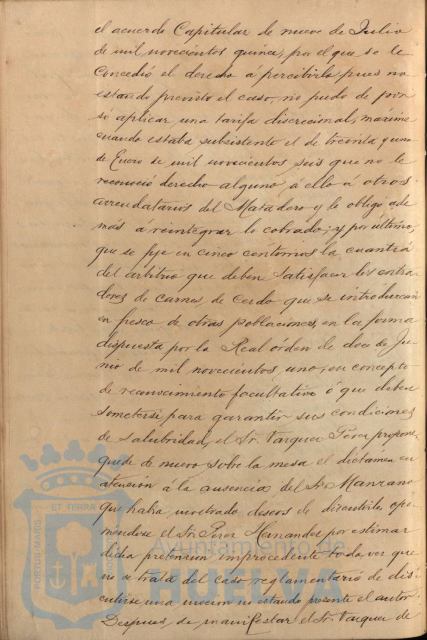 el acuerdo Capitular de nueve de Julio
de mil novecientos quince, por el que se le
concedió el derecho a percibirlo pues no
estando previsto el caso, no pudo de por
si aplicar una tarifa discrecional, máxime
cuando estaba subsistente el de treinta y uno
de Enero de mil novecientos seis que no le
reconoció derecho alguno á ello á otros
arrendatarios del Matadero y le obligó ade
más a reintegrar lo cobrado; y por último,
que se fije en cinco centimos la cuantía
del arbitrio que deben satisfacer los
de carnes de Cerdo que se introduzcan
en fresco de otras poblaciones, en la forma
dispuesta por la Real órden de doce de Ju
nio de mil novecientos uno, en concepto
de reconocimiento facultativo á que deben
someterse para garantir sus condiciones
de salubridad, el Sr. Vazquez Perez propone
quede de nuevo sobre la mesa el dictámen en
atencion á la ausencia del Sr. Manzano
que habia mostrado deseos de discutirlo opo
niendose el Sr. Perez Hernandez por estimar
dicha pretension improcedente toda vez que
no se trata del caso reglamentario de dis
cutirse una mocion no estando presente el autor.
Despues de manifestar el Sr. Vazquez de
PORTUS MARIS ET TERRÆ
Ayuntamiento de
HUELVA